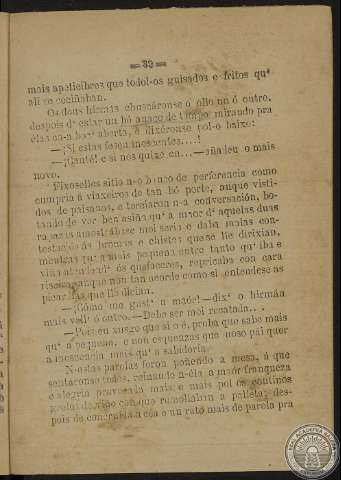 =33=
mais apeticibres que todol-os guisados e fritos qu'
alí se cociñaban.
Os dous hirmáns chuscáronse o ollo un ó outro,
despois d' estar un bó anaco de tempo mirando pra
elas co-a boca aberta, e dixéronse pol-o baixo:
—¡Si estas fosen inocentes....!
—¡Canté! e si nos quixeran...—añadeu o mais
novo.
Fíxoselles sitio n-o banco de perferencia como
cumpría á viaxeiros de tan bó porte, anque visti-
dos de paisanos, e tornaron n-a conversación, bo-
tando de ver ben asiña qu' a maor d' aquelas duas
rapazas amostrábase moi seria e daba malas con-
testaciós ás e chistes que se lle dirixían,
mentras qu' a mais pequena entre tanto qu' iba e
viña atendend' ós quefaceres, repricaba con cara
riseira, aunque non tan acorde como si entendese as
que lle dicían.
—¡Cómo me gust' a maor!—dix' o hirmán
mais vell' ó outro.—Debe ser moi recatada...
—Pois eu xuzgo que si o é, proba que sabe mais
qu' a pequena, e non esquenzas que noso pái quer
a inocencia mais qu' a sabiduría.
N-estas parolas foron poñendo a mesa, á que
sentáronse todos, reinando n-ela a maor franqueza
e alegría
des-
pois de concruida a cea e un rato mais de parola pra